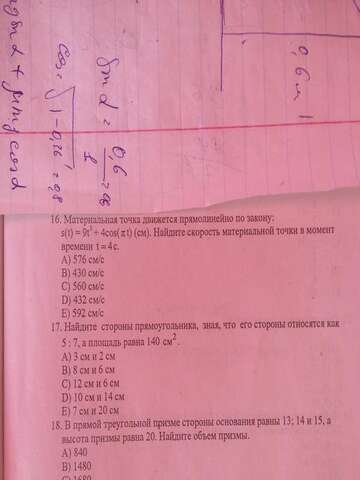 0,6 м
sin α = 0,6 / 1 = 0,6
cos = √1-0,36 = 0,8
mg sin α + μmg cos α
16. Материальная точка движется прямолинейно по закону:
s(t) = 9t³ + 4cos(πt) (см). Найдите скорость материальной точки в момент
времени t = 4 с.
A) 576 см/с
B) 430 см/с
C) 560 см/с
D) 432 см/с
E) 592 см/с
17. Найдите стороны прямоугольника, зная, что его стороны относятся как
5 : 7, а площадь равна 140 см².
A) 3 см и 2 см
B) 8 см и 6 см
C) 12 см и 6 см
D) 10 см и 14 см
E) 7 см и 20 см
18. В прямой треугольной призме стороны основания равны 13; 14 и 15, а
высота призмы равна 20. Найдите объем призмы.
A) 840
B) 1480